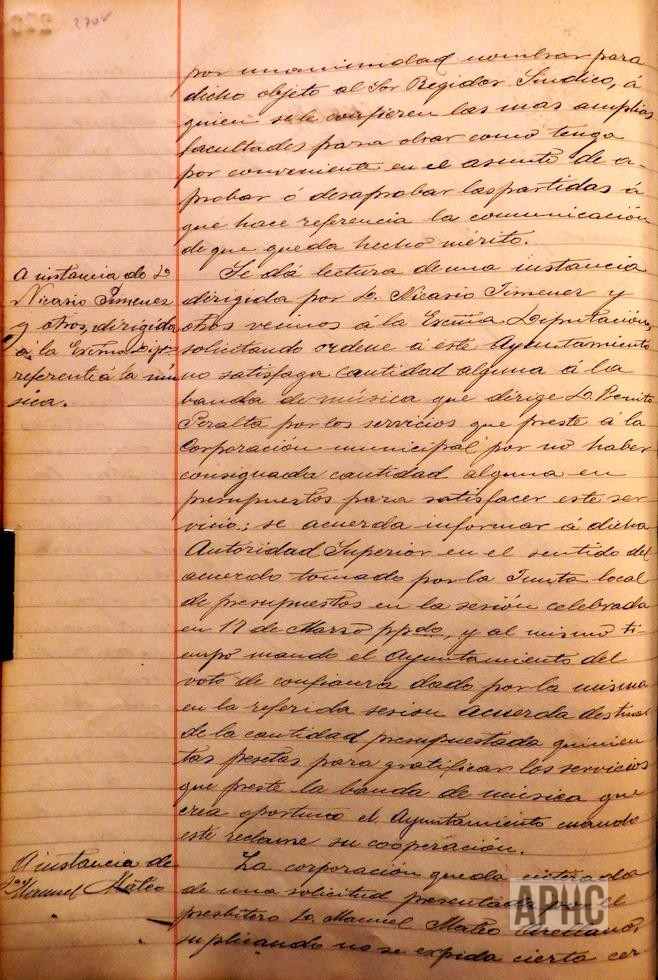 270v
por unanimidad nombrar para
dicho objeto al Sor Regidor Sindico, á
quien se le confieren las mas amplias
facultades para obrar como tenga
por conveniente en el asunto de a-
probar ó desaprobar las partidas á
que hace referencia la comunicación
de que queda hecho mérito.
A instancia de D.
Nicasio Jimenez
y otros, dirigida
á la Excma Dip.
referente á la mú
sica.
Se dá lectura de una instancia
dirigida por D. Nicasio Jimenez y
otros vecinos á la Excma Diputación,
solicitando ordene á este Ayuntamiento
no satisfaga cantidad alguna á la
banda de música que dirige D. Benito
Peralta por los servicios que preste á la
Corporación municipal por no haber
consignada cantidad alguna en
presupuestos para satisfacer este ser
vicio; se acuerda informar á dicha
Autoridad Superior en el sentido del
acuerdo tomado por la Junta local
de presupuestos en la sesión celebrada
en 17 de Marzo ppdo, y al mismo ti-
empo usando el Ayuntamiento del
voto de confianza dado por la misma
en la referida sesion acuerda destinar
de la cantidad presupuestada quinien
tas pesetas para gratificar los servicios
que preste la banda de música que
crea oportuno el Ayuntamiento cuando
este reclame su cooperación.
A instancia de
Dn Manuel Mateo
La corporación queda enterada
de una solicitud presentada por el
presbitero D. Manuel Mateo Arellano,
suplicando no se expida cierta cer
APHC